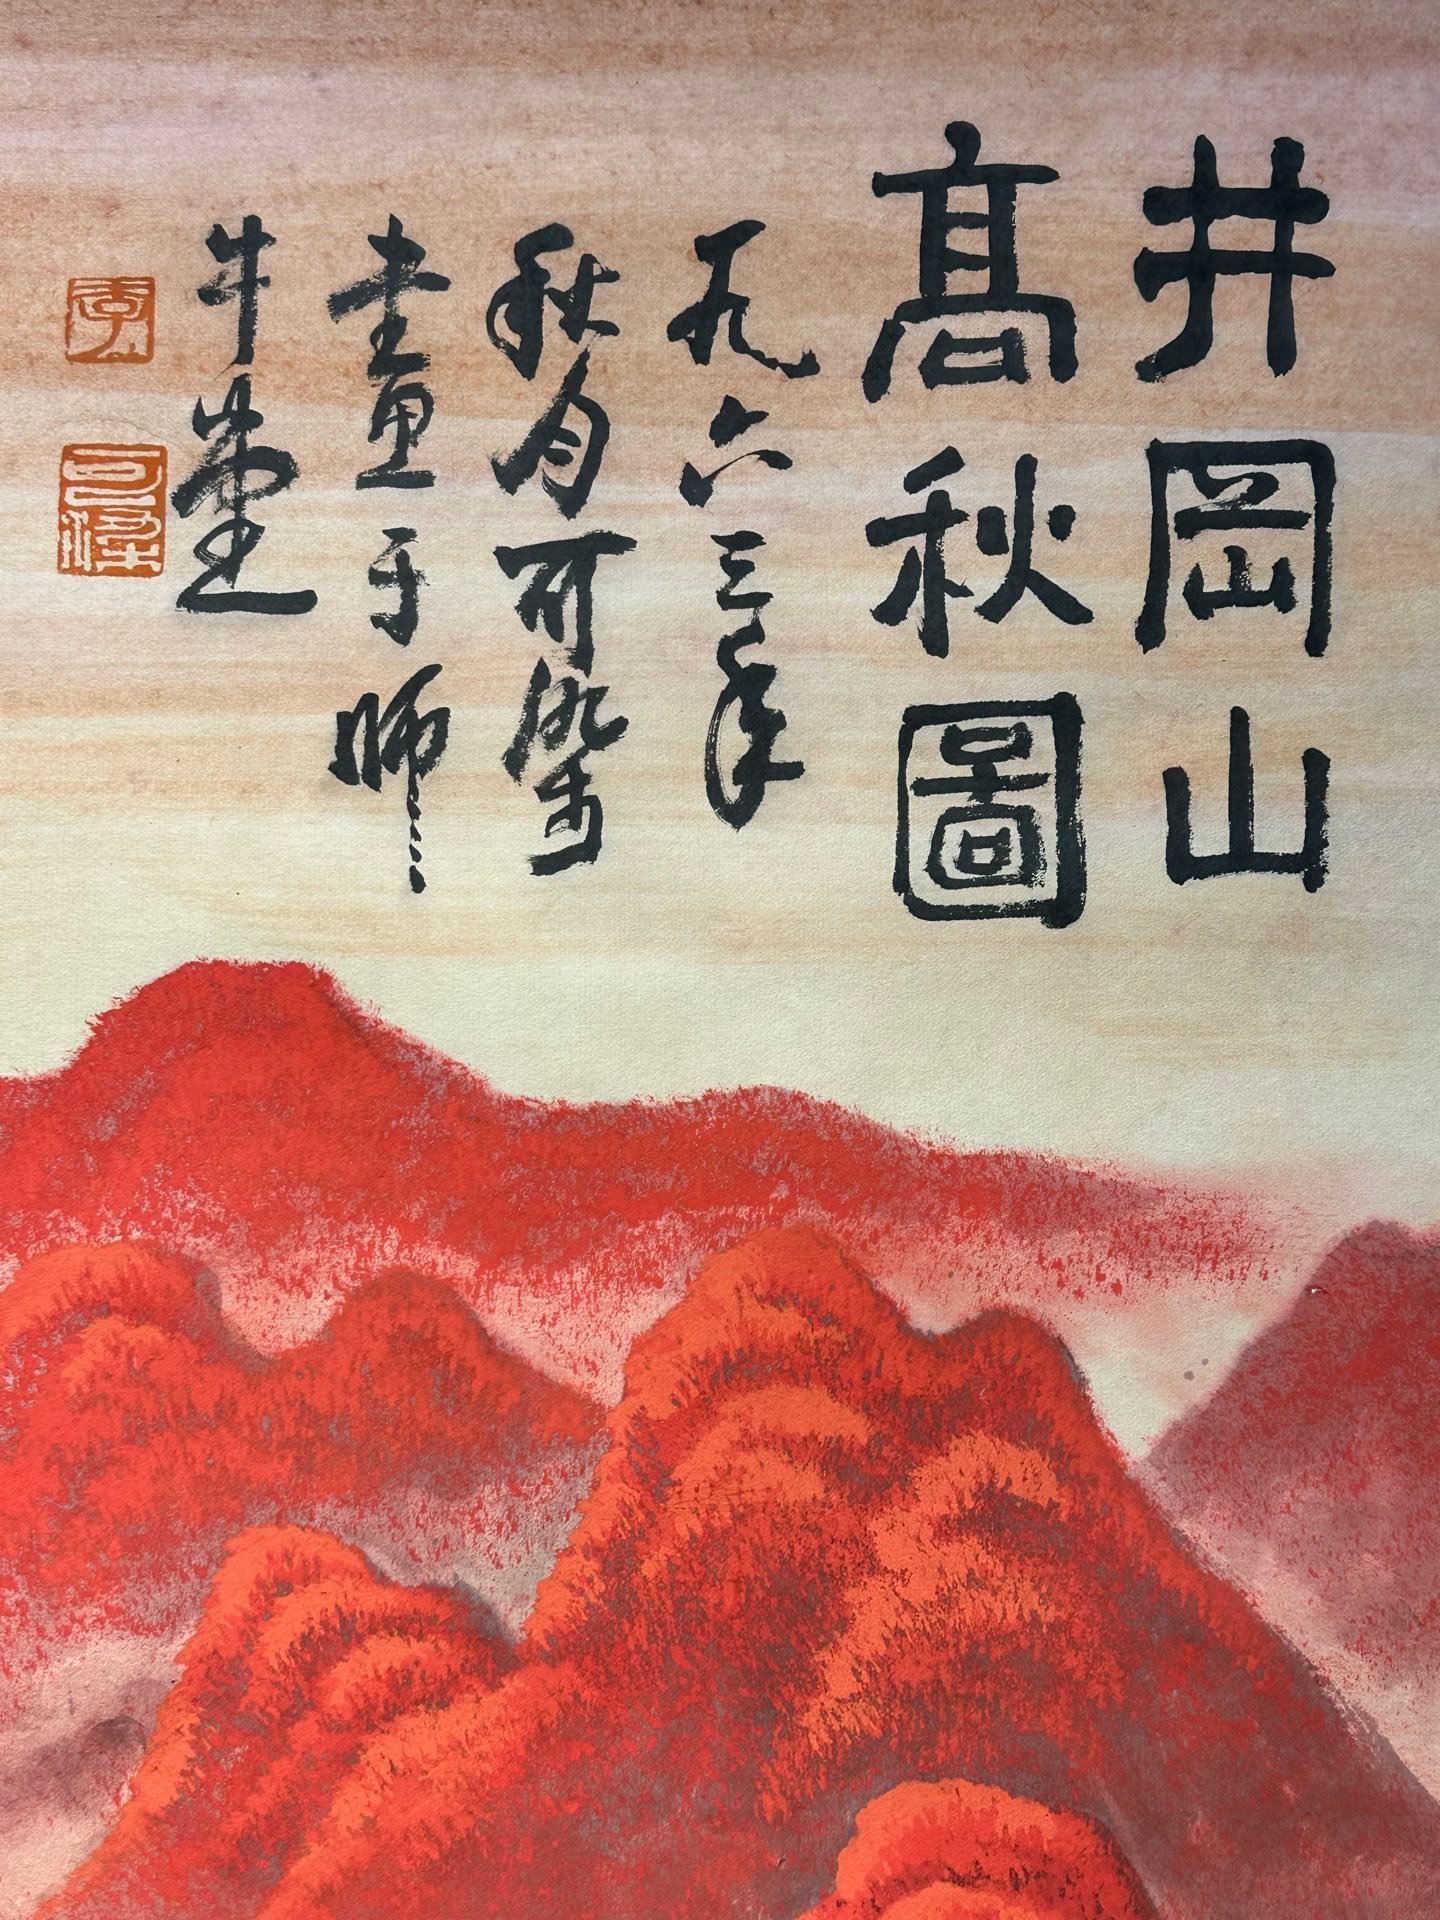 井岡山
髙秋圖
一九六三年
秋月可染
畫于師
牛堂
李
可染